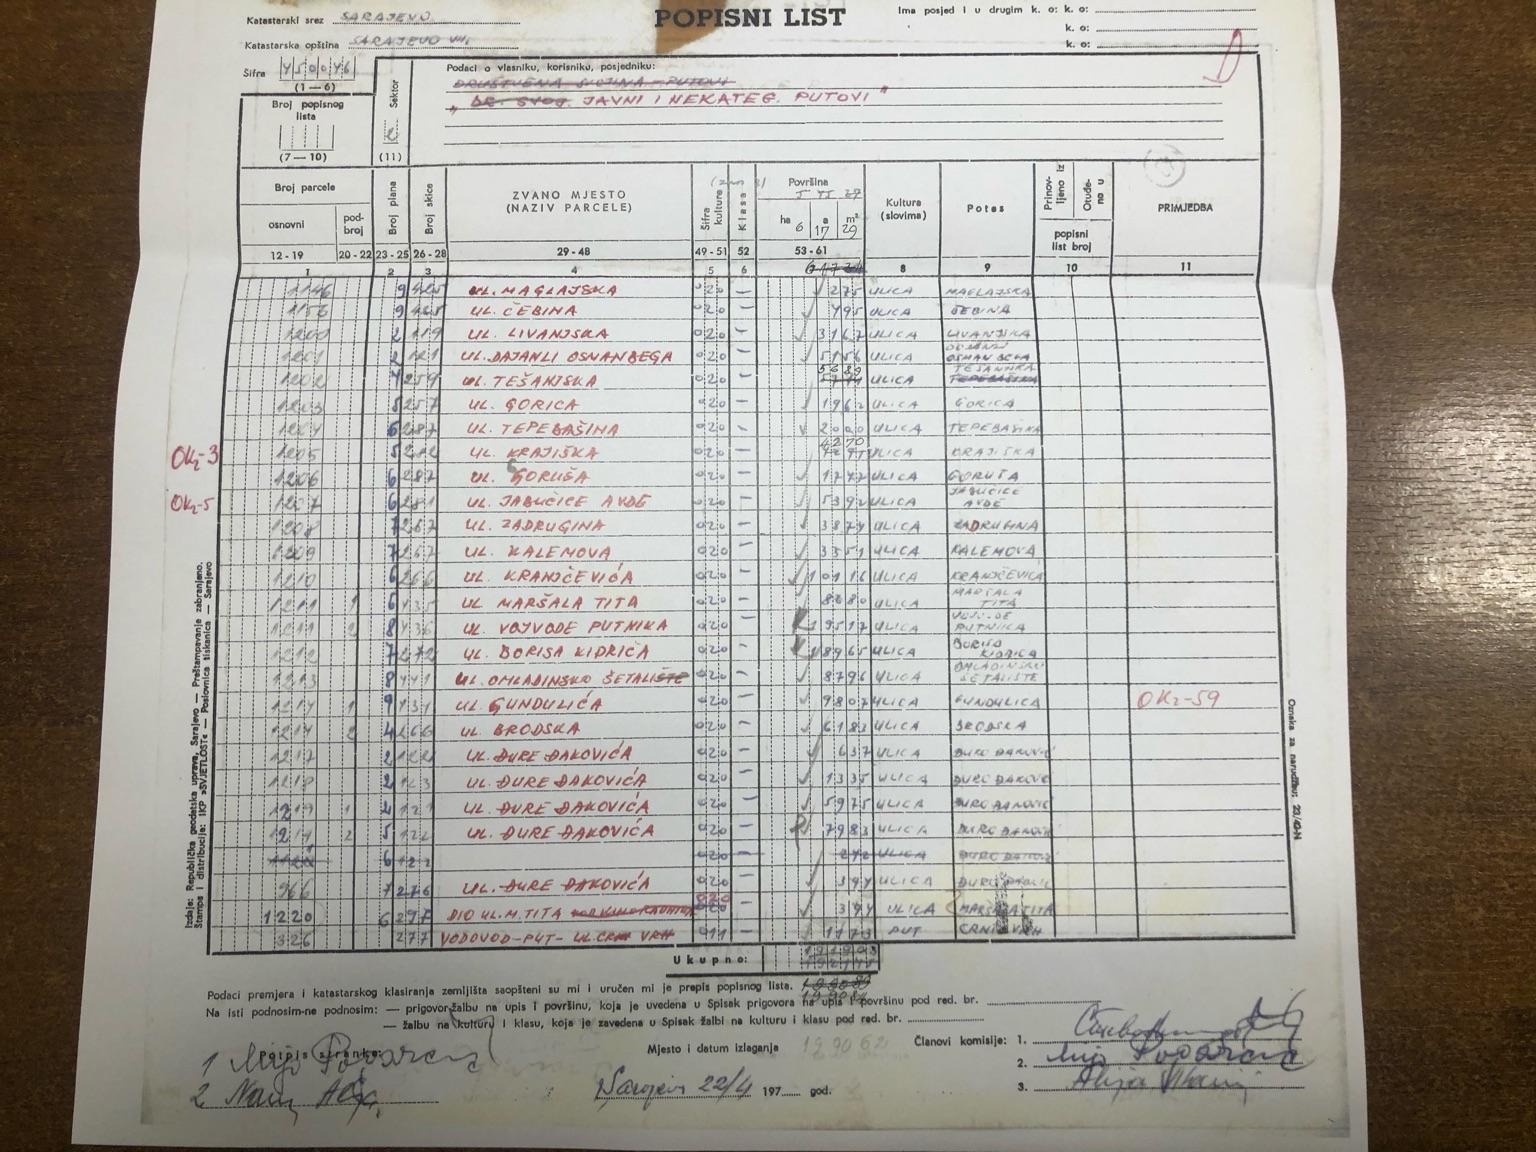 Katastarski srez SARAJEVO
POPISNI LIST
Ima posjed i u drugim k. o: k. o:
k. o:
k. o:
Katastarska opština SARAJEVO VIII
Šifra 450046
(1 — 6)
Broj popisnog
lista
(7 — 10)
Sektor
(11)
Podaci o vlasniku, korisniku, posjedniku:
DRUŠTVENA SVOJINA - PUTOVI
„ DR. SVOJ. JAVNI I NEKATEG. PUTOVI "
Broj parcele
osnovni
pod-
broj
Broj plana
Broj skice
ZVANO MJESTO
(NAZIV PARCELE)
Šifra kulture
Klasa
Površina
ha a m²
6 17 29
Kultura
(slovima)
Potes
Prinov-
ljeno iz
Otuđe-
na u
popisni
list broj
PRIMJEDBA
12 - 19 20 - 22 23 - 25 26 - 28 29 - 48 49 - 51 52 53 - 61
1 2 3 4 5 6 8 9 10 11
1146 9 425 UL. MAGLAJSKA 020 — 275 ULICA MAGLAJSKA
1156 9 425 UL. ČEBINA 020 — 495 ULICA ČEBINA
1200 2 119 UL. LIVANJSKA 020 — 3167 ULICA LIVANJSKA
1201 2 121 UL. DAJANLI OSMANBEGA 020 — 5156 ULICA DAJANLI OSMAN BEGA
1202 4 259 UL. TEŠANJSKA 020 — 5689 ULICA TEŠANJSKA TEPEBAŠINA
1203 5 257 UL. GORICA 020 — 1962 ULICA GORICA
1204 6 287 UL. TEPEBAŠINA 020 — 2000 ULICA TEPEBAŠINA
OKz-3 1205 5 212 UL. KRAJIŠKA 020 — 4270 ULICA KRAJIŠKA
1206 6 287 UL. GORUŠA 020 — 1777 ULICA GORUŠA
OKz-5 1207 6 281 UL. JABUČICE AVDE 020 — 5392 ULICA JABUČICE AVDE
1208 7 267 UL. ZADRUGINA 020 — 3874 ULICA ZADRUGINA
1209 7 267 UL. KALEMOVA 020 — 3351 ULICA KALEMOVA
1210 6 266 UL. KRANJČEVIĆA 020 — 10116 ULICA KRANJČEVIĆA
1211 1 6 435 UL MARŠALA TITA 020 — 8680 ULICA MARŠALA TITA
1211 2 8 436 UL. VOJVODE PUTNIKA 020 — 19517 ULICA VOJVODE PUTNIKA
1212 7 272 UL. BORISA KIDRIČA 020 — 18965 ULICA BORISA KIDRIČA
1213 8 441 UL. OMLADINSKO ŠETALIŠTE 020 — 8796 ULICA OMLADINSKO ŠETALIŠTE
1214 1 9 431 UL. GUNDULIĆA 020 — 9807 ULICA GUNDULIĆA OKz-59
1214 2 4 266 UL. BRODSKA 020 — 6183 ULICA BRODSKA
1217 2 122 UL. ĐURE ĐAKOVIĆA 020 — 637 ULICA ĐURO ĐAKOVIĆ
1218 2 123 UL. ĐURE ĐAKOVIĆA 020 — 1335 ULICA ĐURO ĐAKOVIĆ
1219 1 4 121 UL. ĐURE ĐAKOVIĆA 020 — 5975 ULICA ĐURO ĐAKOVIĆ
1219 2 5 122 UL. ĐURE ĐAKOVIĆA 020 — 7983 ULICA ĐURO ĐAKOVIĆ
6 122 020 — 242 ULICA ĐURO ĐAKOVIĆ
966 7 276 UL. ĐURE ĐAKOVIĆA 020 394 ULICA ĐURO ĐAKOVIĆ
1220 6 297 DIO UL. M. TITA KOD KINO RADNIKA 020 394 ULICA MARŠALA TITA
326 277 VODOVOD - PUT - UL CRNI VRH 911 — 1173 PUT CRNI VRH
Ukupno:
Izdaje: Republička geodetska uprava, Sarajevo — Preštampavanje zabranjeno.
Štampa i distribucija: IKP »SVJETLOST« — Poslovnica tiskanica — Sarajevo
Oznaka za narudžbu: 22/40-N
Podaci premjera i katastarskog klasiranja zemljišta saopšteni su mi i uručen mi je prepis popisnog lista.
Na isti podnosim-ne podnosim: — prigovor-žalbu na upis i površinu, koja je uvedena u Spisak prigovora na upis i površinu pod red. br.
— žalbu na kulturu i klasu, koja je zavedena u Spisak žalbi na kulturu i klasu pod red. br.
Potpis stranke:
Mjesto i datum izlaganja
199062
Članovi komisije: 1.
1
2.
2
Sarajevo 22/4 197 god.
3.